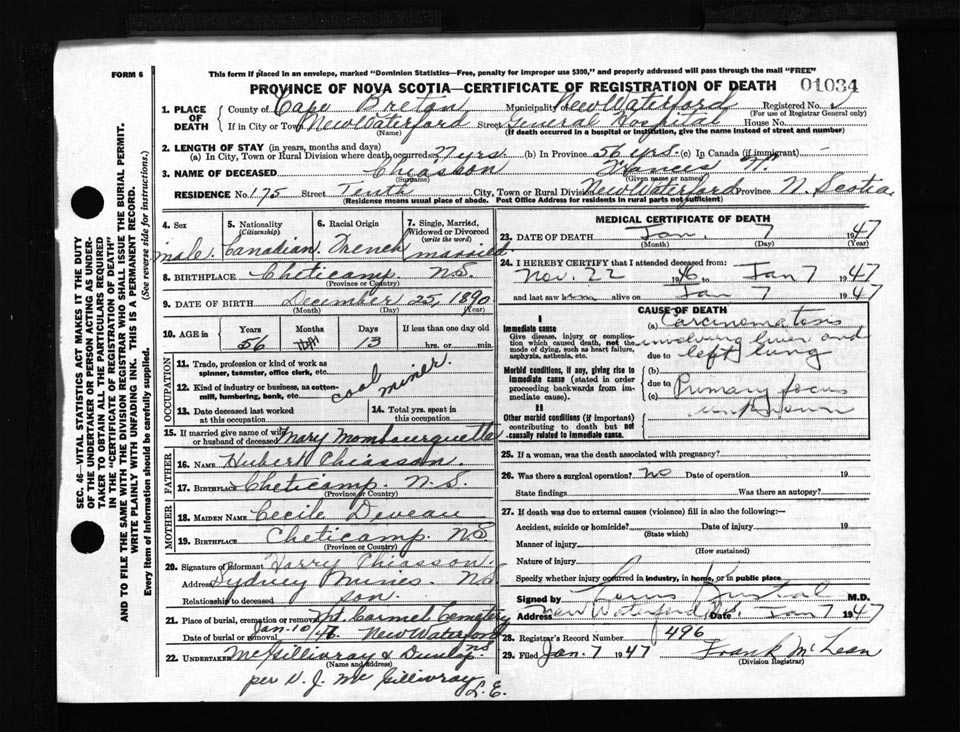 FORM 6
This form if placed in an envelope, marked "Dominion Statistics—Free, penalty for improper use $300," and properly addressed will pass through the mail "FREE"
PROVINCE OF NOVA SCOTIA—CERTIFICATE OF REGISTRATION OF DEATH
01034
1. PLACE OF DEATH
County of Cape Breton Municipality of New Waterford Registered No. 2
(For use of Registrar General only)
If in City or Town New Waterford Street General Hospital House No.
(Name) (If death occurred in a hospital or institution, give the name instead of street and number)
2. LENGTH OF STAY (in years, months and days)
(a) In City, Town or Rural Division where death occurred 27 yrs (b) In Province 56 yrs. (c) In Canada (if immigrant) —
3. NAME OF DECEASED Chiasson Francis W.
(Surname) (Given name or names)
RESIDENCE No. 175 Street Tenth City, Town or Rural Division New Waterford Province N. Scotia
(Residence means usual place of abode. Post Office Address for residents in rural parts not sufficient)
4. Sex
male.
5. Nationality
(Citizenship)
Canadian
6. Racial Origin
French
7. Single, Married, Widowed or Divorced
(write the word)
married
8. BIRTHPLACE Cheticamp N.S.
(Province or Country)
9. DATE OF BIRTH December 25, 1890
(Month) (Day) (Year)
10. AGE in
Years Months Days If less than one day old
56 13 hrs. or min.
OCCUPATION
11. Trade, profession or kind of work as spinner, teamster, office clerk, etc.
12. Kind of industry or business, as cotton-mill, lumbering, bank, etc.
coal miner.
13. Date deceased last worked at this occupation
14. Total yrs. spent in this occupation
15. If married give name of wife or husband of deceased Mary Mombourquette
FATHER
16. NAME Hubert Chiasson.
17. BIRTHPLACE Cheticamp. N.S.
(Province or Country)
MOTHER
18. MAIDEN NAME Cecile Deveau
19. BIRTHPLACE Cheticamp. N.S.
(Province or Country)
20. Signature of informant Harry Chiasson
Address Sydney Mines. N.S.
Relationship to deceased son.
21. Place of burial, cremation or removal Mt. Carmel Cemetery
Date of burial or removal Jan. 10/47. New Waterford
22. UNDERTAKER McGillivray & Dunlop. NS
(Name and address)
per V. J. McGillivray
L.E.
MEDICAL CERTIFICATE OF DEATH
23. DATE OF DEATH Jan. 7 1947
(Month) (Day) (Year)
24. I HEREBY CERTIFY that I attended deceased from:
Nov. 22 1946 to Jan 7 1947
and last saw him alive on Jan 7 1947
CAUSE OF DEATH
I
Immediate cause
Give disease, injury or complication which caused death, not the mode of dying, such as heart failure, asphyxia, asthenia, etc.
(a) Carcinomatosis
involving liver and
due to left lung
Morbid conditions, if any, giving rise to immediate cause (stated in order proceeding backwards from immediate cause).
(b)
due to Primary focus
(c) unknown
II
Other morbid conditions (if important) contributing to death but not causally related to immediate cause.
25. If a woman, was the death associated with pregnancy?
26. Was there a surgical operation? no Date of operation 19
State findings Was there an autopsy?
27. If death was due to external causes (violence) fill in also the following:—
Accident, suicide or homicide? Date of injury 19
(State which)
Manner of injury
(How sustained)
Nature of injury
Specify whether injury occurred in industry, in home, or in public place
Signed by Louis M.D.
Address New Waterford N.S. Date Jan 7 1947
28. Registrar's Record Number 496
29. Filed Jan. 7 1947 Frank McLean
(Division Registrar)
SEC. 46—VITAL STATISTICS ACT MAKES IT THE DUTY
OF THE UNDERTAKER OR PERSON ACTING AS UNDER-
TAKER TO OBTAIN ALL THE PARTICULARS REQUIRED
IN THE "CERTIFICATE OF REGISTRATION OF DEATH"
AND TO FILE THE SAME WITH THE DIVISION REGISTRAR WHO SHALL ISSUE THE BURIAL PERMIT.
WRITE PLAINLY WITH UNFADING INK. THIS IS A PERMANENT RECORD.
Every item of information should be carefully supplied. (See reverse side for instructions.)